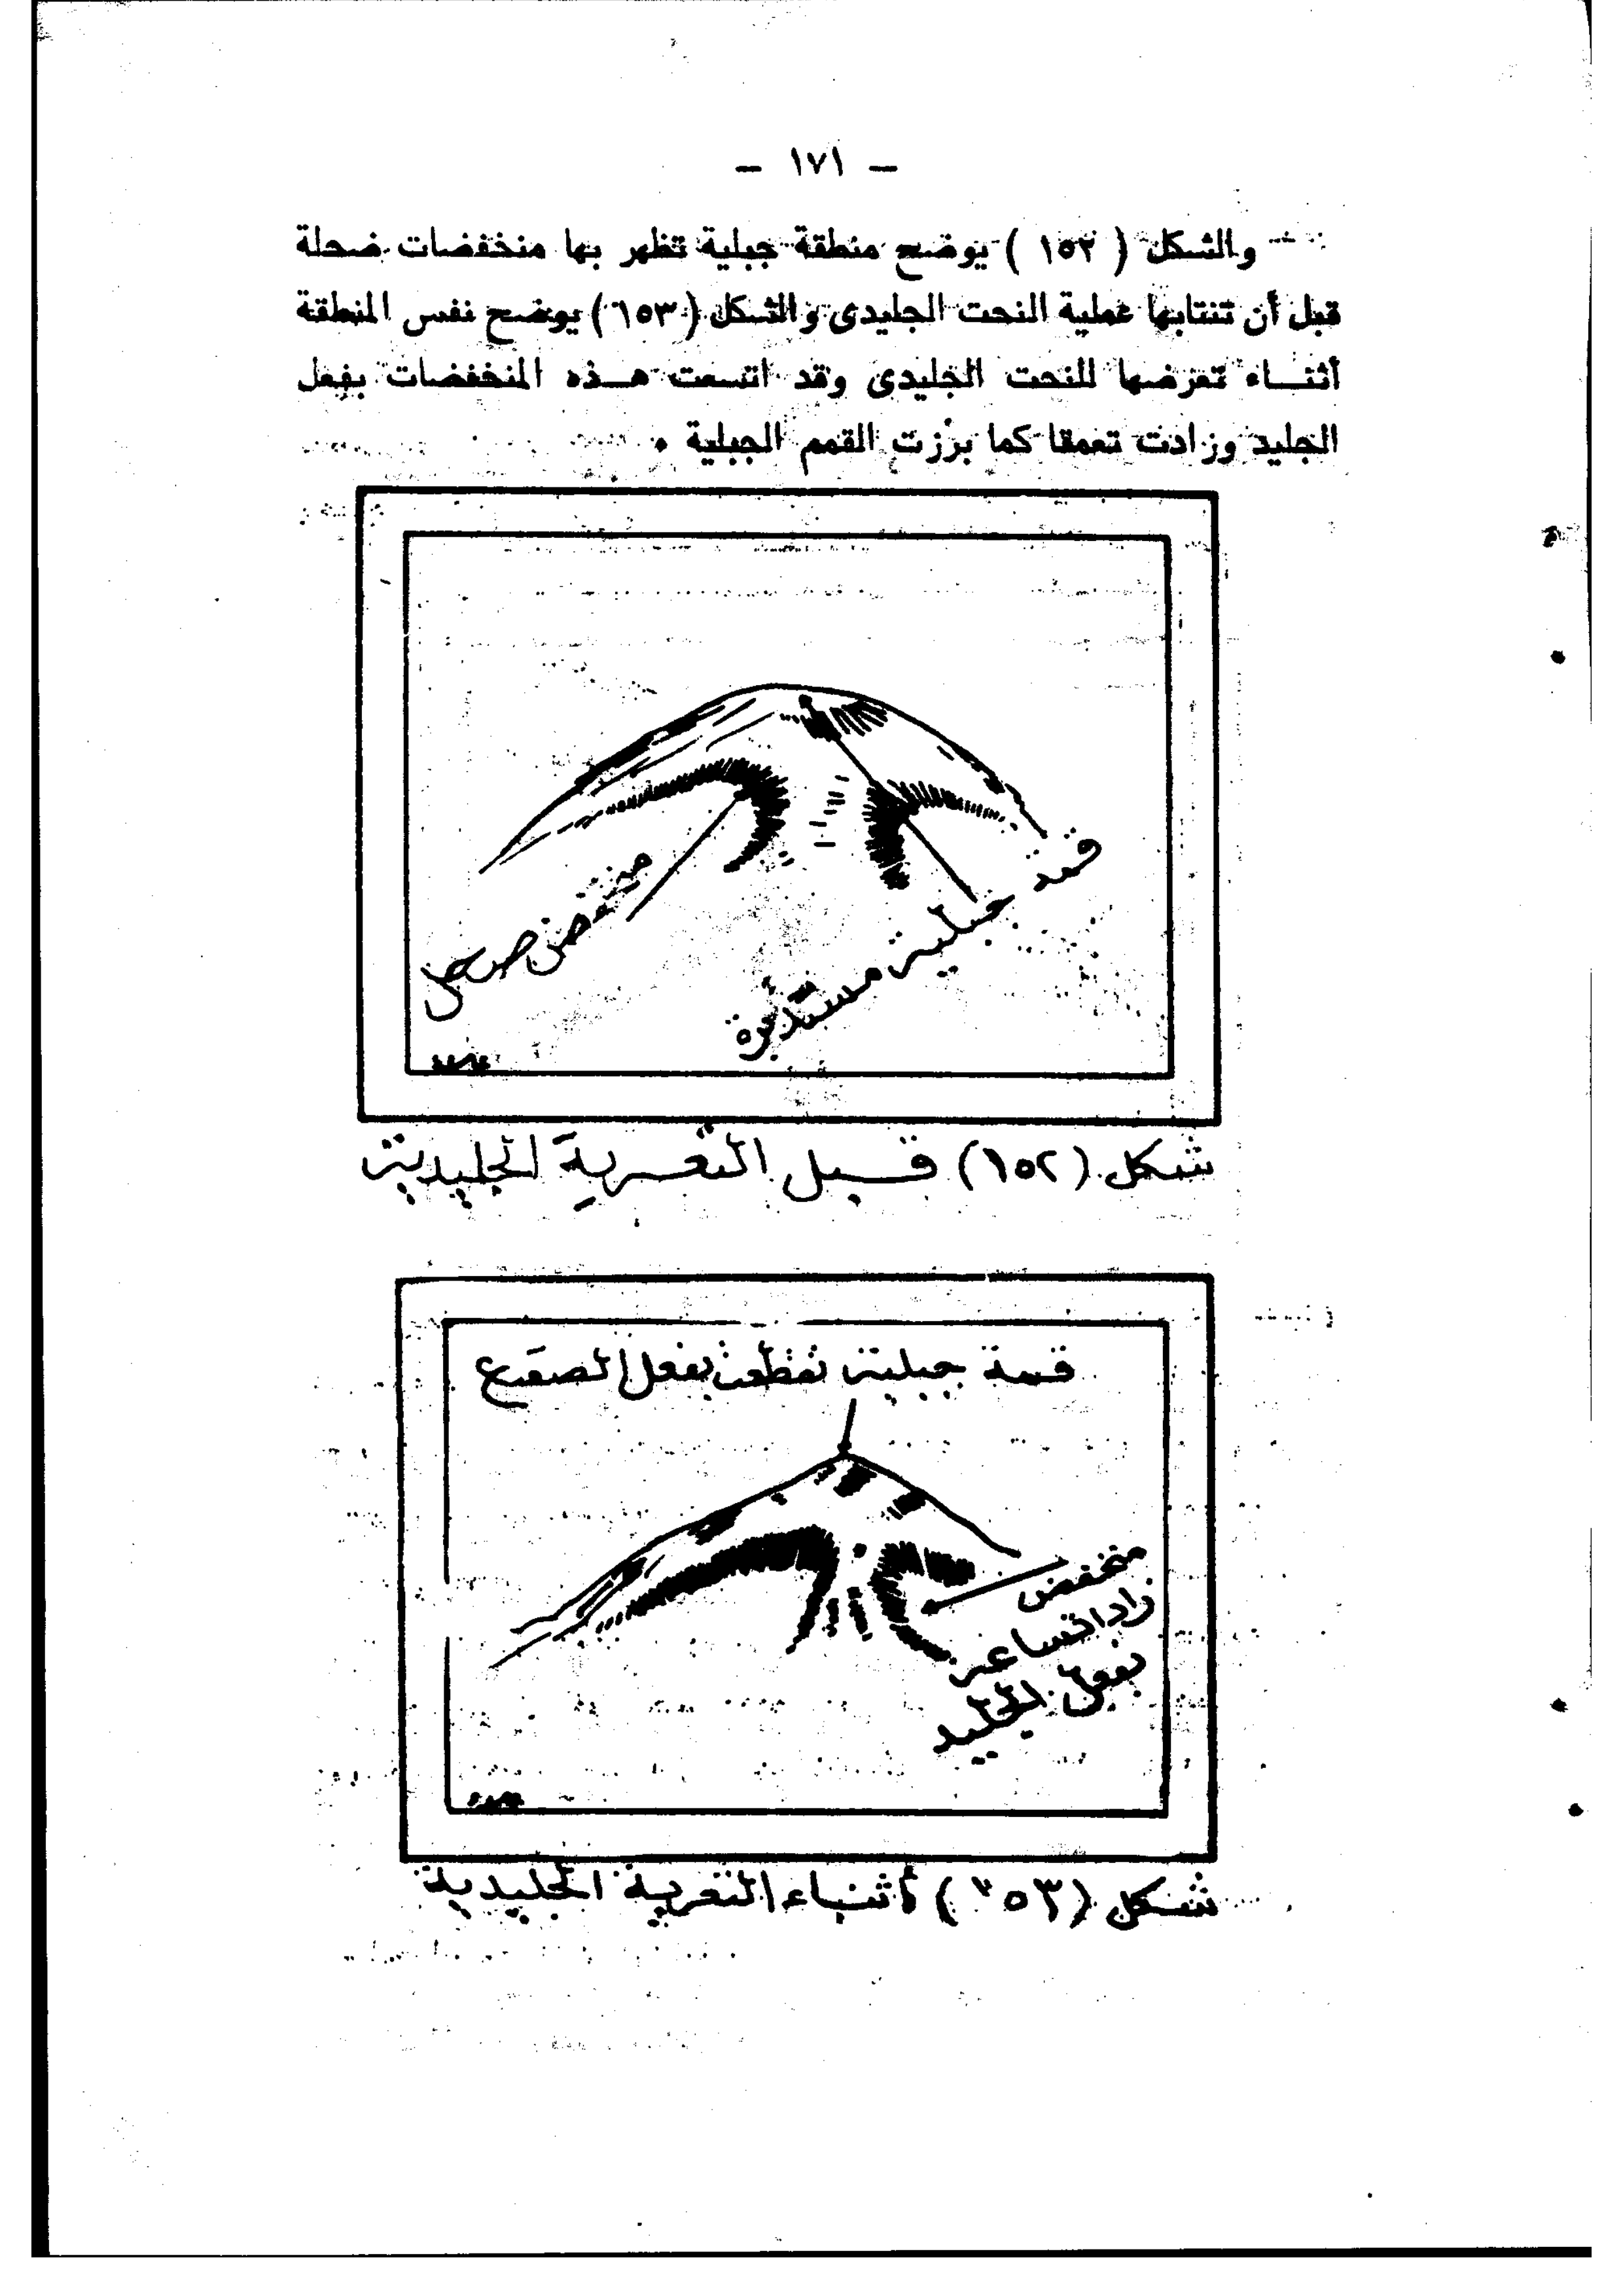 — ١٧١ —
والشكل ( ١٥٢ ) يوضح منطقة جبلية تظهر بها منخفضات ضحلة
قبل أن تنتابها عملية النحت الجليدى والشكل (١٥٣) يوضح نفس المنطقة
أثنـــاء تعرضها للنحت الجليدى وقد اتسعت هـــذه المنخفضات بفعل
الجليد وزادت تعمقا كما برزت القمم الجبلية .
قمة جبلية مستديرة
منخفض ضحل
شكل (١٥٢) قبل التعرية الجليدية
قمة جبلية تقطعت بفعل الصقيع
منخفض
زاد اتساعه
بفعل الجليد
شكل (١٥٣) أثناء التعرية الجليدية